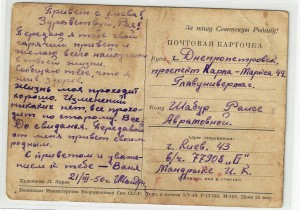 Привет с Киева!
Здравствуй, Рая!
Передаю я тебе свой
горячий привет и
желаю всего наилучшего
в твоей жизни.
Сообщаю тебе, что я
жив, здоров.
Жизнь моя проходит
хорошо. Изменений
никаких нет, все проход
ит по старому. Все.
До свиданья. Передавай
от меня привет своим
родным.
С приветом и уваже
нием к тебе - Ваня.
21/III-50г.
За нашу Советскую Родину!
ПОЧТОВАЯ КАРТОЧКА
Куда г. Днепропетровск
проспект Карла-Маркса
Главунивермаг.
Кому Шавур Раисе
Абрамовной
Адрес отправителя:
г. Киев. 43
в/ч. 77908 „Б"
Мандрик И. К.